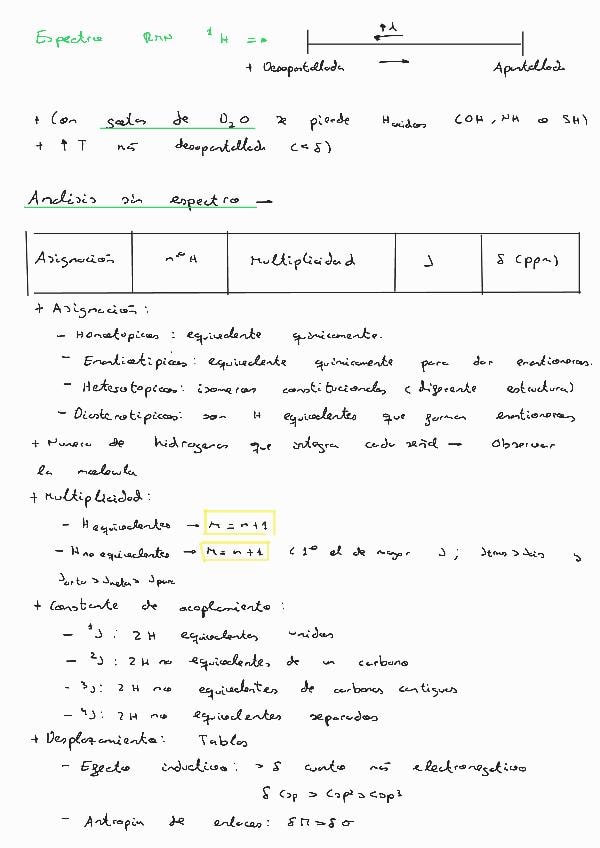 Espectro RMN ¹H =>
↑λ
+ Desapantallada → Apantallado
+ Con gotas de D₂O se pierde Hacidos (OH, NH o SH)
+ ↑T más desapantallada (<δ)
Analisis sin espectro →
Asignación nº H Multiplicidad J δ (ppm)
+ Asignación:
- Homotopicos: equivalente quimicamente.
- Enantiotipicos: equivalente quimicamente para dar enantiomeros.
- Heterotopicos: isomeros constitucionales (diferente estructura)
- Diasterotipicos: son H equivalentes que forman enantiomeros
+ Numero de hidrogenos que integra cada señal → Observar
la molecula
+ Multiplicidad:
- H equivalentes → M = n+1
- H no equivalentes → M = n+1 (1º el de mayor J; Jtrans > Jcis y
Jorto > Jmeta > Jpara
+ Constante de acoplamiento:
- ¹J: 2 H equivalentes unidos
- ²J: 2 H no equivalentes de un carbono
- ³J: 2 H no equivalentes de carbonos contiguos
- ⁴J: 2 H no equivalentes separados
+ Desplazamiento: Tablas
- Efecto inductivo: > δ cuanto más electronegativo
δ Csp > Csp² > Csp³
- Antropia de enlaces: δ π > δ σ